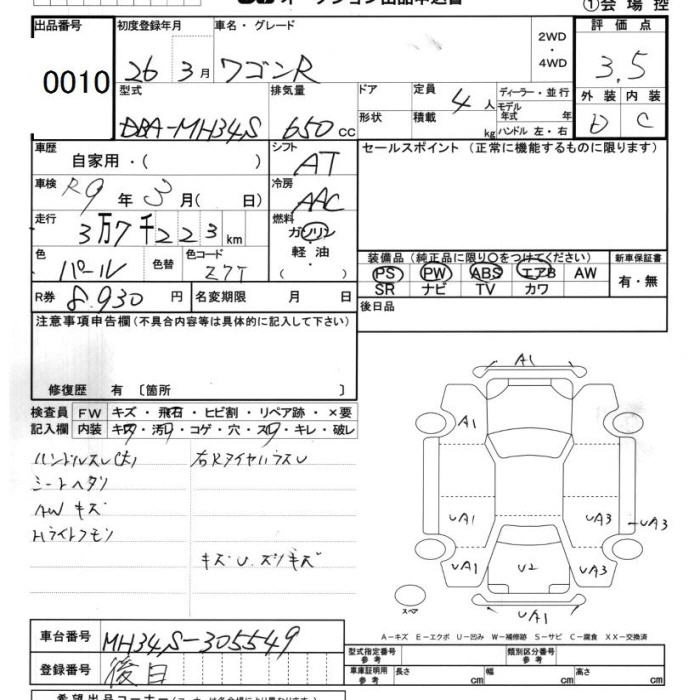 ①会場控
出品番号 初度登録年月 車名・グレード 評価点
0010 26 3月 ワゴンR 2WD ・ 4WD 3.5
型式 排気量 ドア 定員 ディーラー・並行 外装 内装
DBA-MH34S 650 cc 形状 積載 4人 kg モデル年式 年 ハンドル 左・右 D C
車歴 自家用・( ) シフト AT セールスポイント(正常に機能するものに限ります)
車検 R9年3月( 日) 冷房 AAC
走行 3万7千223km 燃料 ガソリン
軽油
・( )
色 パール 色替 色コード Z7T
装備品(純正品に限り○をつけてください) 新車保証書
PS PW ABS エアB AW 有・無
SR ナビ TV カワ
R券 8,930円 名変期限 月 日 後日品
注意事項申告欄(不具合内容等は具体的に記入して下さい)
修復歴 有〔箇所 〕
検査員 FW キズ・飛石・ヒビ割・リペア跡・×要
記入欄 内装 キズ・汚レ・コゲ・穴・スレ・キレ・破レ
ハンドルスレ(大)
シートヘタリ
AWキズ
Hライトクモリ
キズU.ズリキズ
A1
A1
UA1 UA3 UA3
UA1 U2 UA3
スペア UA1
A-キズ E-エクボ U-凹み W-補修跡 S-サビ C-腐食 XX-交換済
車台番号 MH34S-305549
登録番号 後日
型式指定番号 参考 類別区分番号 参考
車庫証明用 参考 長さ cm 幅 cm 高さ cm